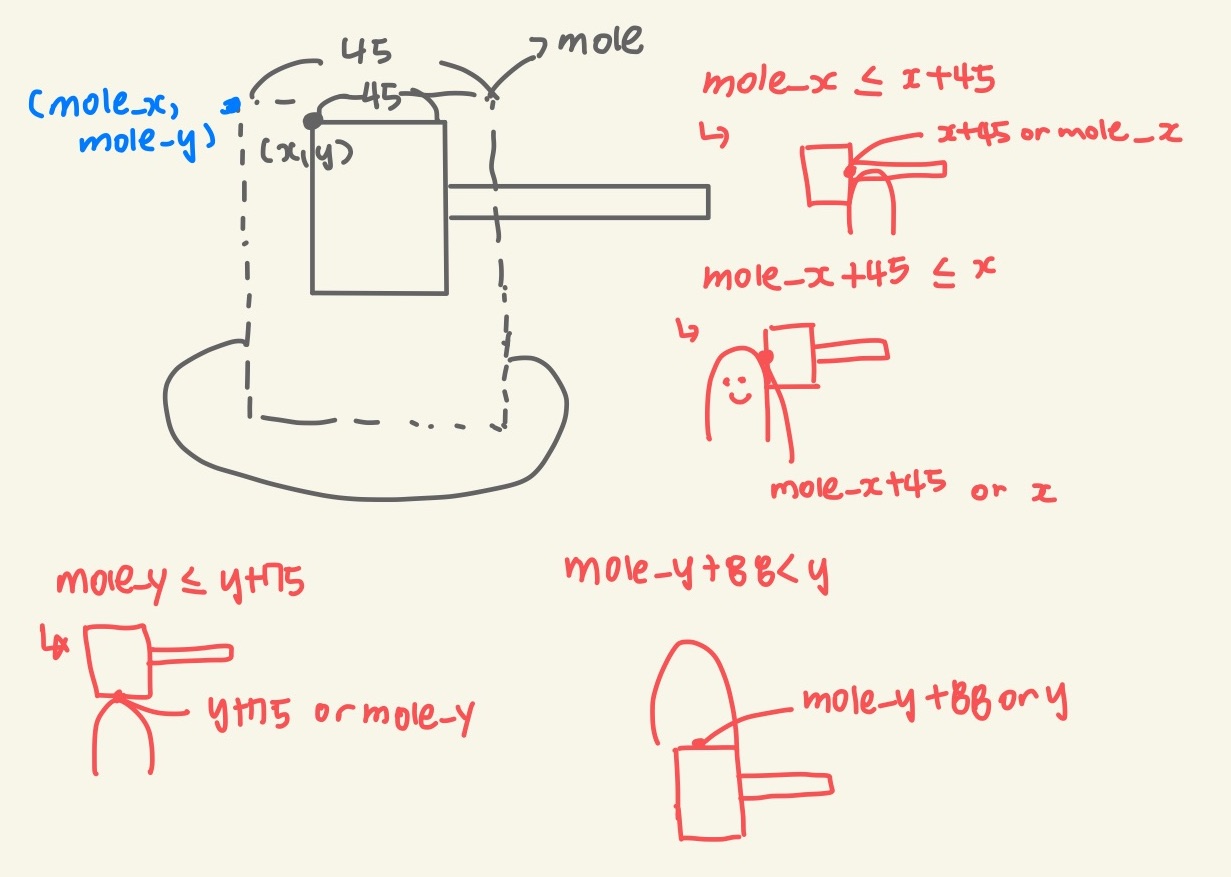 45
mole
45
(mole_x,
mole-y)
(x,y)
mole_x ≤ x+45
x+45 or mole_x
mole_x+45 ≤ x
mole_x+45 or x
mole_y ≤ y+75
y+75 or mole_y
mole_y+88<y
mole_y+88 or y